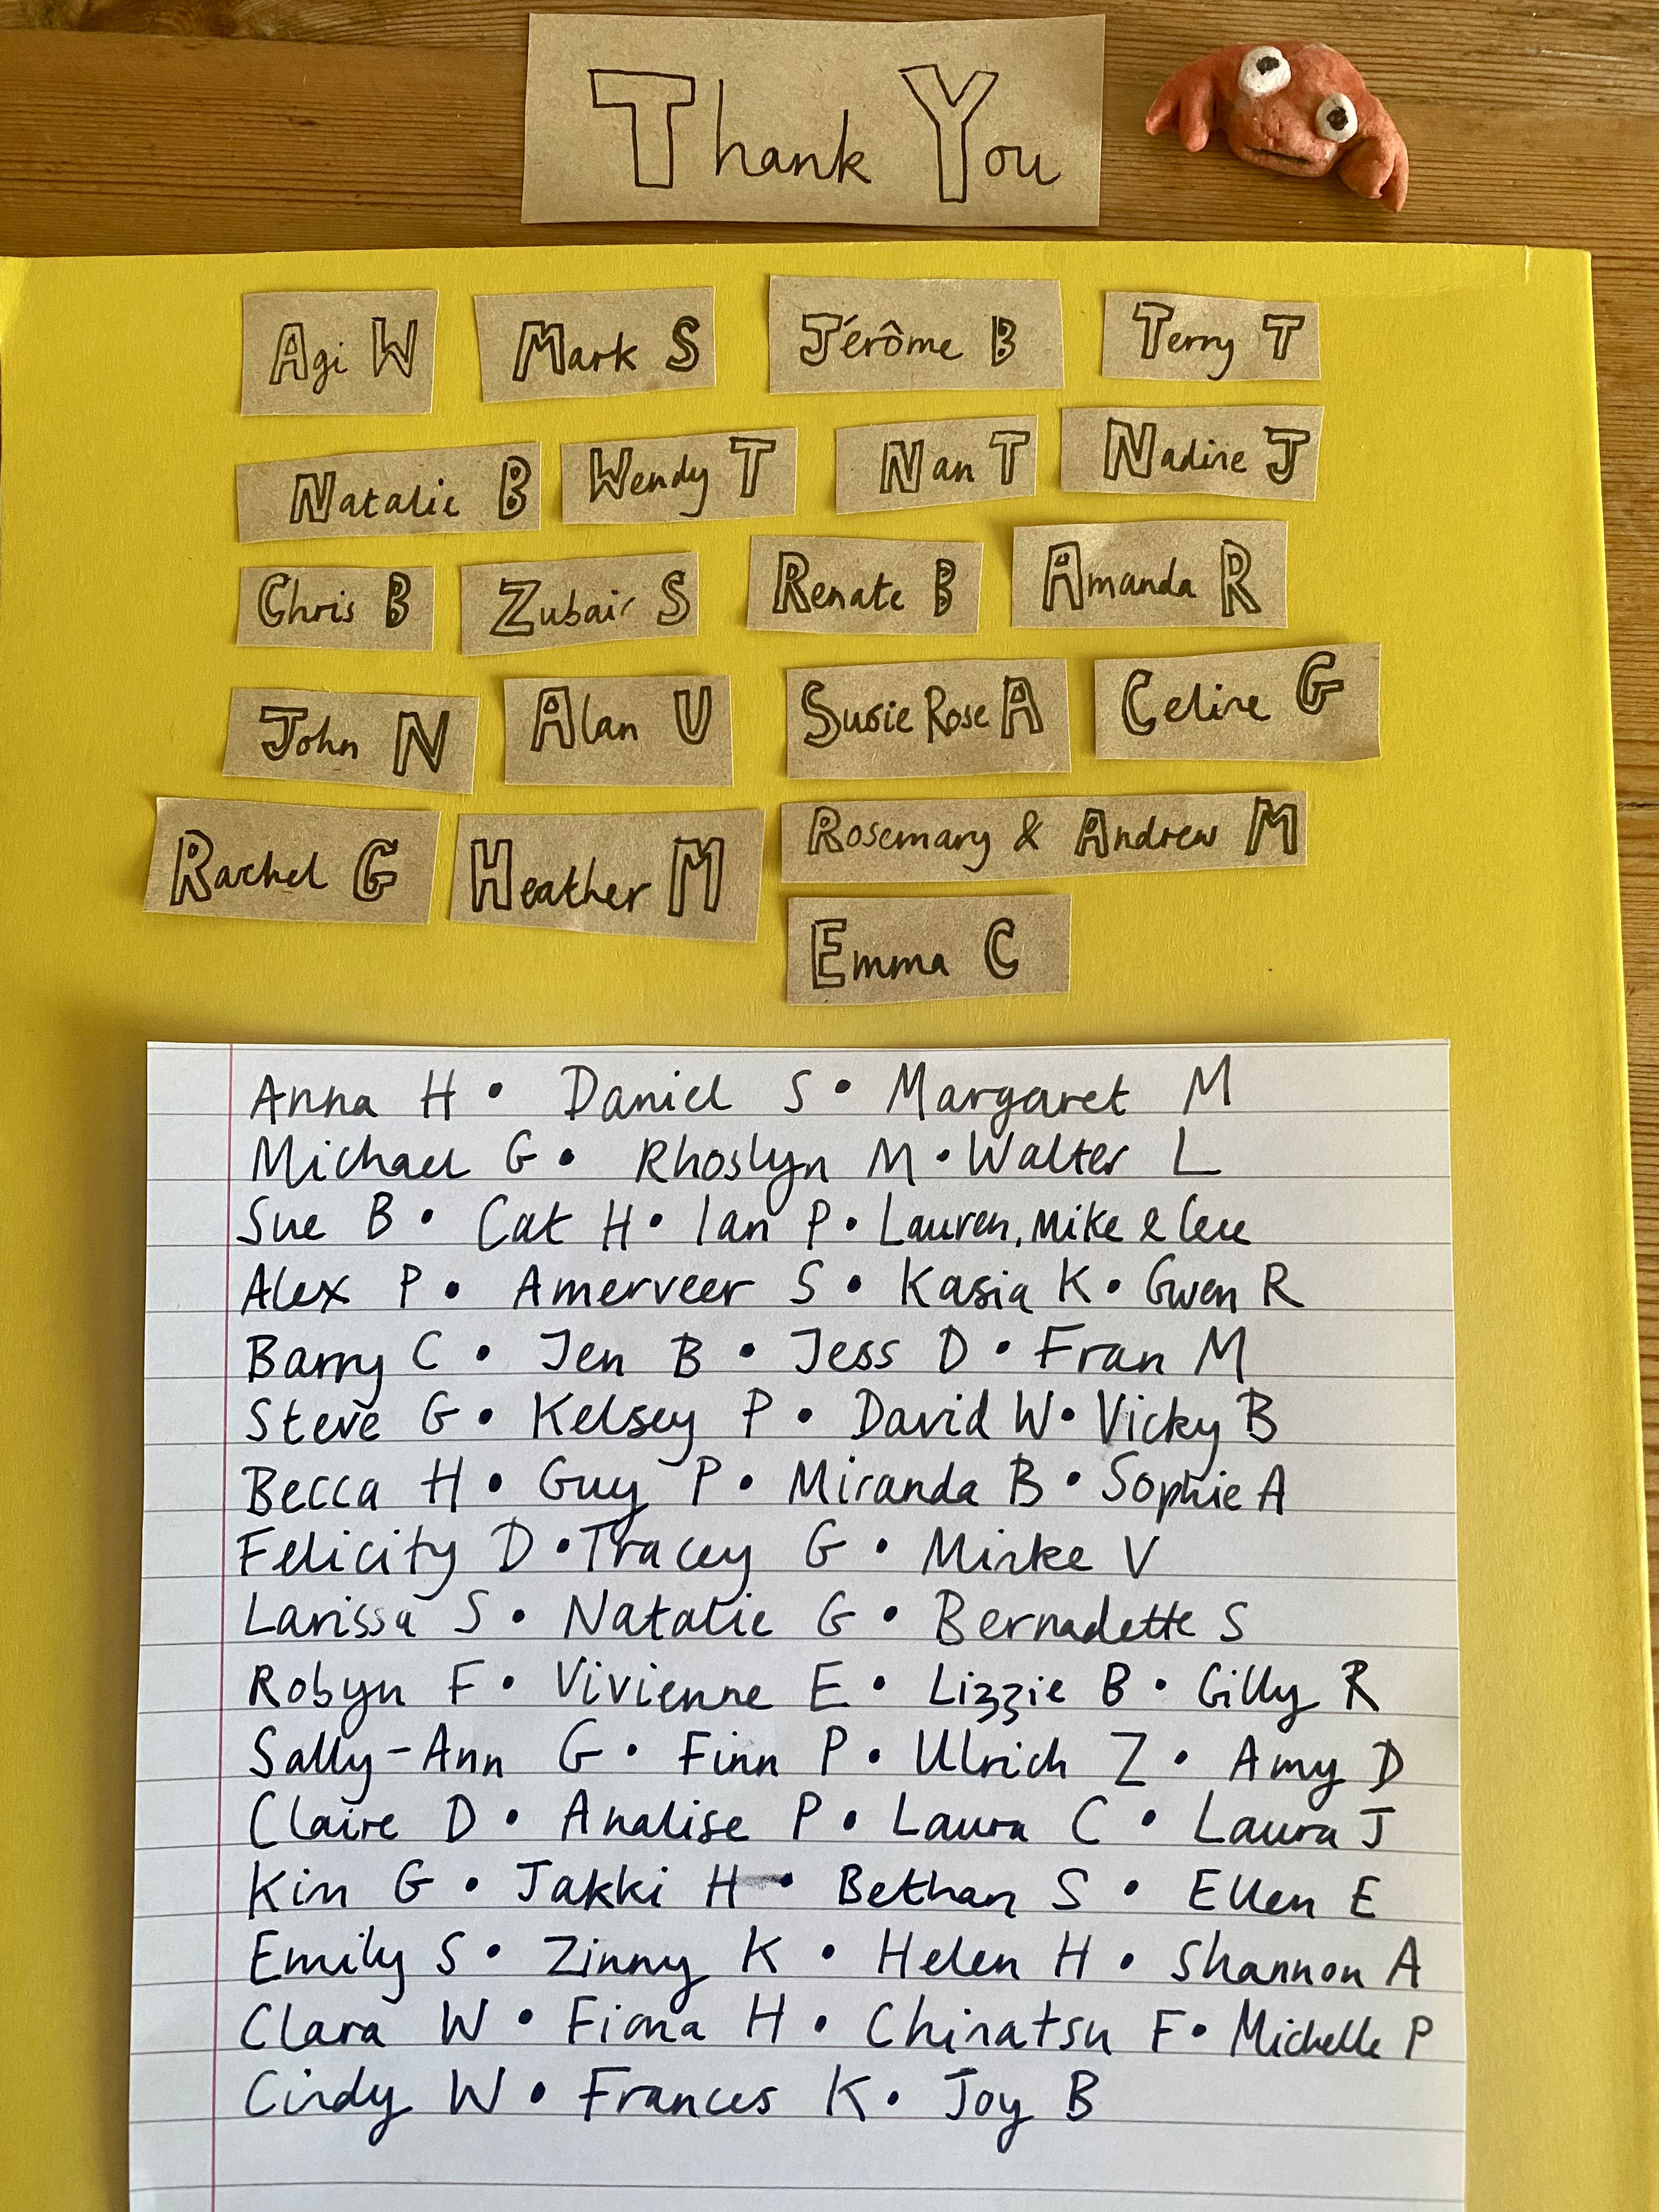 Thank You
Agi W Mark S Jérôme B Terry T
Natalie B Wendy T Nan T Nadine J
Chris B Zubair S Renate B Amanda R
John N Alan U Susie Rose A Celine G
Rachel G Heather M Rosemary & Andrew M
Emma C
Anna H • Daniel S • Margaret M
Michael G • Rhoslyn M • Walter L
Sue B • Cat H • Ian P • Lauren, Mike &
Alex P • Amerveer S • Kasia K • Gwen R
Barry C • Jen B • Jess D • Fran M
Steve G • Kelsey P • David W • Vicky B
Becca H • Guy P • Miranda B • Sophie A
Felicity D • Tracey G • Mirke V
Larissa S • Natalie G • Bernadette S
Robyn F • Vivienne E • Lizzie B • Gilly R
Sally-Ann G • Finn P • Ulrich Z • Amy D
Claire D • Analise P • Laura C • Laura J
Kim G • Jakki H • Bethan S • Ellen E
Emily S • Zinny K • Helen H • Shannon A
Clara W • Fiona H • Chinatsu F • Michelle P
Cindy W • Frances K • Joy B